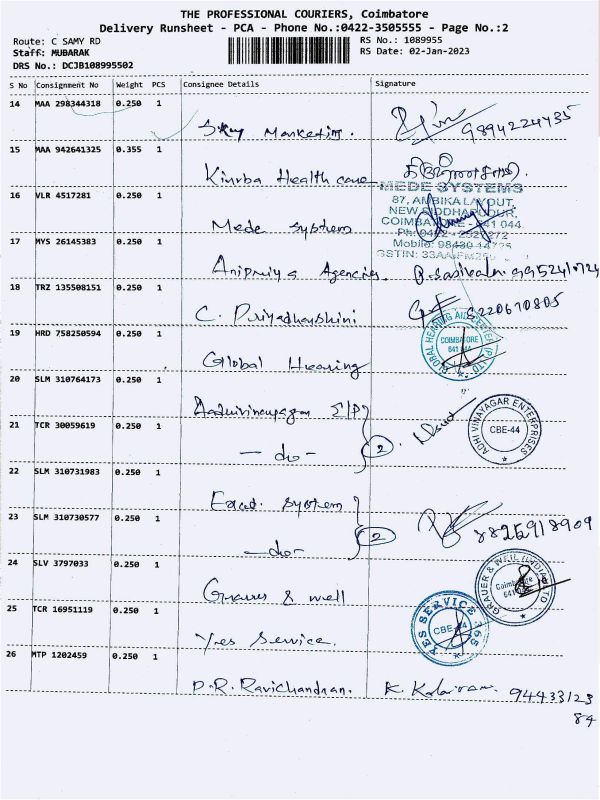 THE PROFESSIONAL COURIERS, Coimbatore
Delivery Runsheet - PCA - Phone No.:0422-3505555 - Page No.:2
Route: C SAMY RD
RS No.: 1089955
Staff: MUBARAK
RS Date: 02-Jan-2023
DRS No.: DCJB108995502
S No Consignment No Weight PCS Consignee Details Signature
14 MAA 298344318 0.250 1
Sky Marketing. 9894224435
15 MAA 942641325 0.355 1
Kiurba Health care
MEDE SYSTEMS
87, AMBIKA LAYOUT,
16 VLR 4517281 0.250 1
NEW SIDDHAPUDUR,
COIMBATORE - 641 044.
Mede system
Mobile: 98430 14725
17 MYS 26145383 0.250 1
Anipriya Agencies.
18 TRZ 135508151 0.250 1
C. Priyadharshini
GLOBAL HEARING AID CENTER (P) LTD.
COIMBATORE
19 HRD 758250594 0.250 1
Global Hearing
20 SLM 310764173 0.250 1
E/P
2
ADHI VINAYAGAR ENTERPRISES
CBE-44
21 TCR 30059619 0.250 1
- do -
22 SLM 310731983 0.250 1
Exact. System
2
8825918909
23 SLM 310730577 0.250 1
- do -
24 SLV 3797033 0.250 1
Grauer & well
GRAUER & WEIL (INDIA) LTD
Coimbatore
25 TCR 16951119 0.250 1
Yes Service.
YES SERVICE 365
CBE-44
26 MTP 1202459 0.250 1
P.R. Ravichandran. 94433123
84